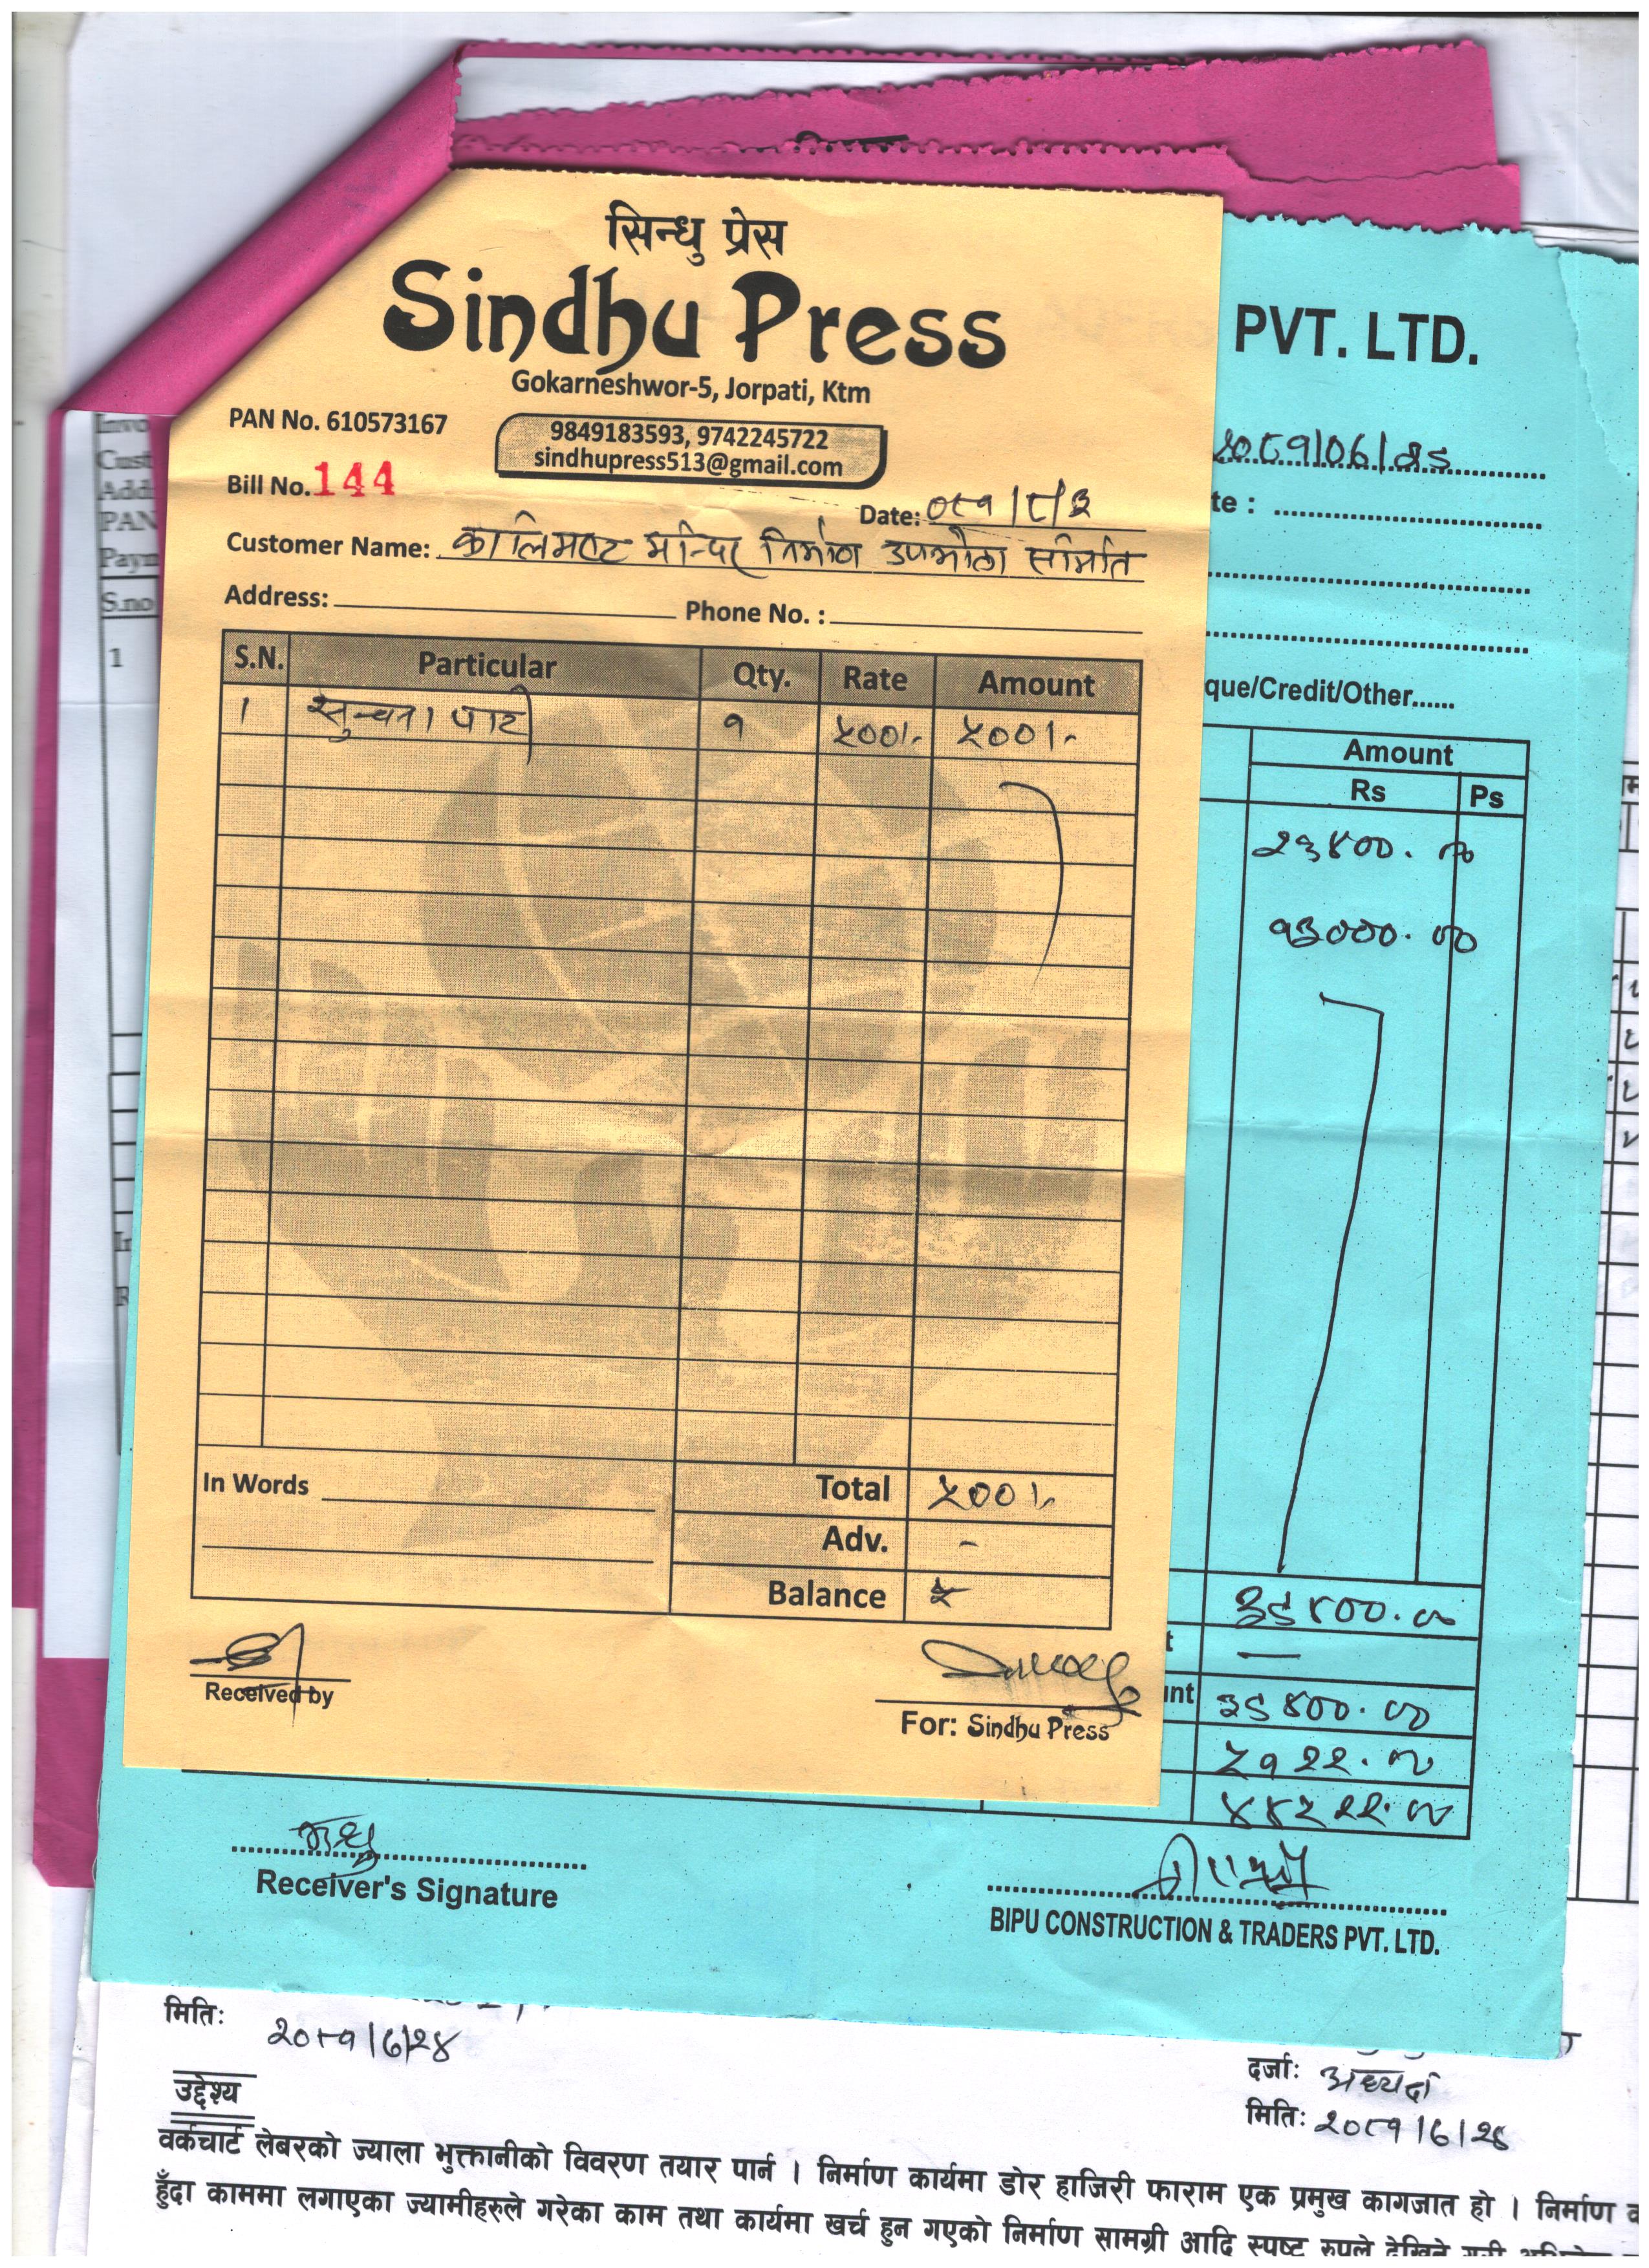 सिन्धु प्रेस
Sindhu Press
Gokarneshwor-5, Jorpati, Ktm
PAN No. 610573167
9849183593, 9742245722
sindhupress513@gmail.com
Bill No. 144
Date: ०८१/८/३
Customer Name: कालिमाण्ट मन्दिर निर्माण उपभोक्ता समिति
Address: Phone No. :
S.N. Particular Qty. Rate Amount
१ सूचना पाटी १ ५००/- ५००/-
In Words
Total ५००/-
Adv. -
Balance
Received by
For: Sindhu Press
PVT. LTD.
२०८१/०६/२८
te :
que/Credit/Other......
Amount
Rs Ps
२६४००.००
१३०००.००
३९४००.००
t —
unt ३९४००.००
५१२२.००
४४५२२.००
Receiver's Signature
BIPU CONSTRUCTION & TRADERS PVT. LTD.
Invo
Cust
Add
PAN
Paym
S.no
1
मितिः
२०८१/६/२४
दर्जाः अध्यक्ष
मितिः २०८१/६/२४
उद्देश्य
वर्कचार्ट लेबरको ज्याला भुक्तानीको विवरण तयार पार्न । निर्माण कार्यमा डोर हाजिरी फाराम एक प्रमुख कागजात हो । निर्माण
हुँदा काममा लगाएका ज्यामीहरुले गरेका काम तथा कार्यमा खर्च हुन गएको निर्माण सामग्री आदि स्पष्ट रुपले देखिने गरी